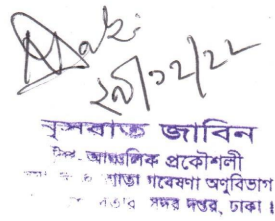 ২৯/১২/২২
নুসরাত জাবিন
উপ-আঞ্চলিক প্রকৌশলী
শ্রোতা গবেষণা অণুবিভাগ
সদর দপ্তর, ঢাকা।